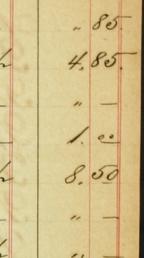 " 85.
4.85.
" —
1. 00
8.50
" —
" —